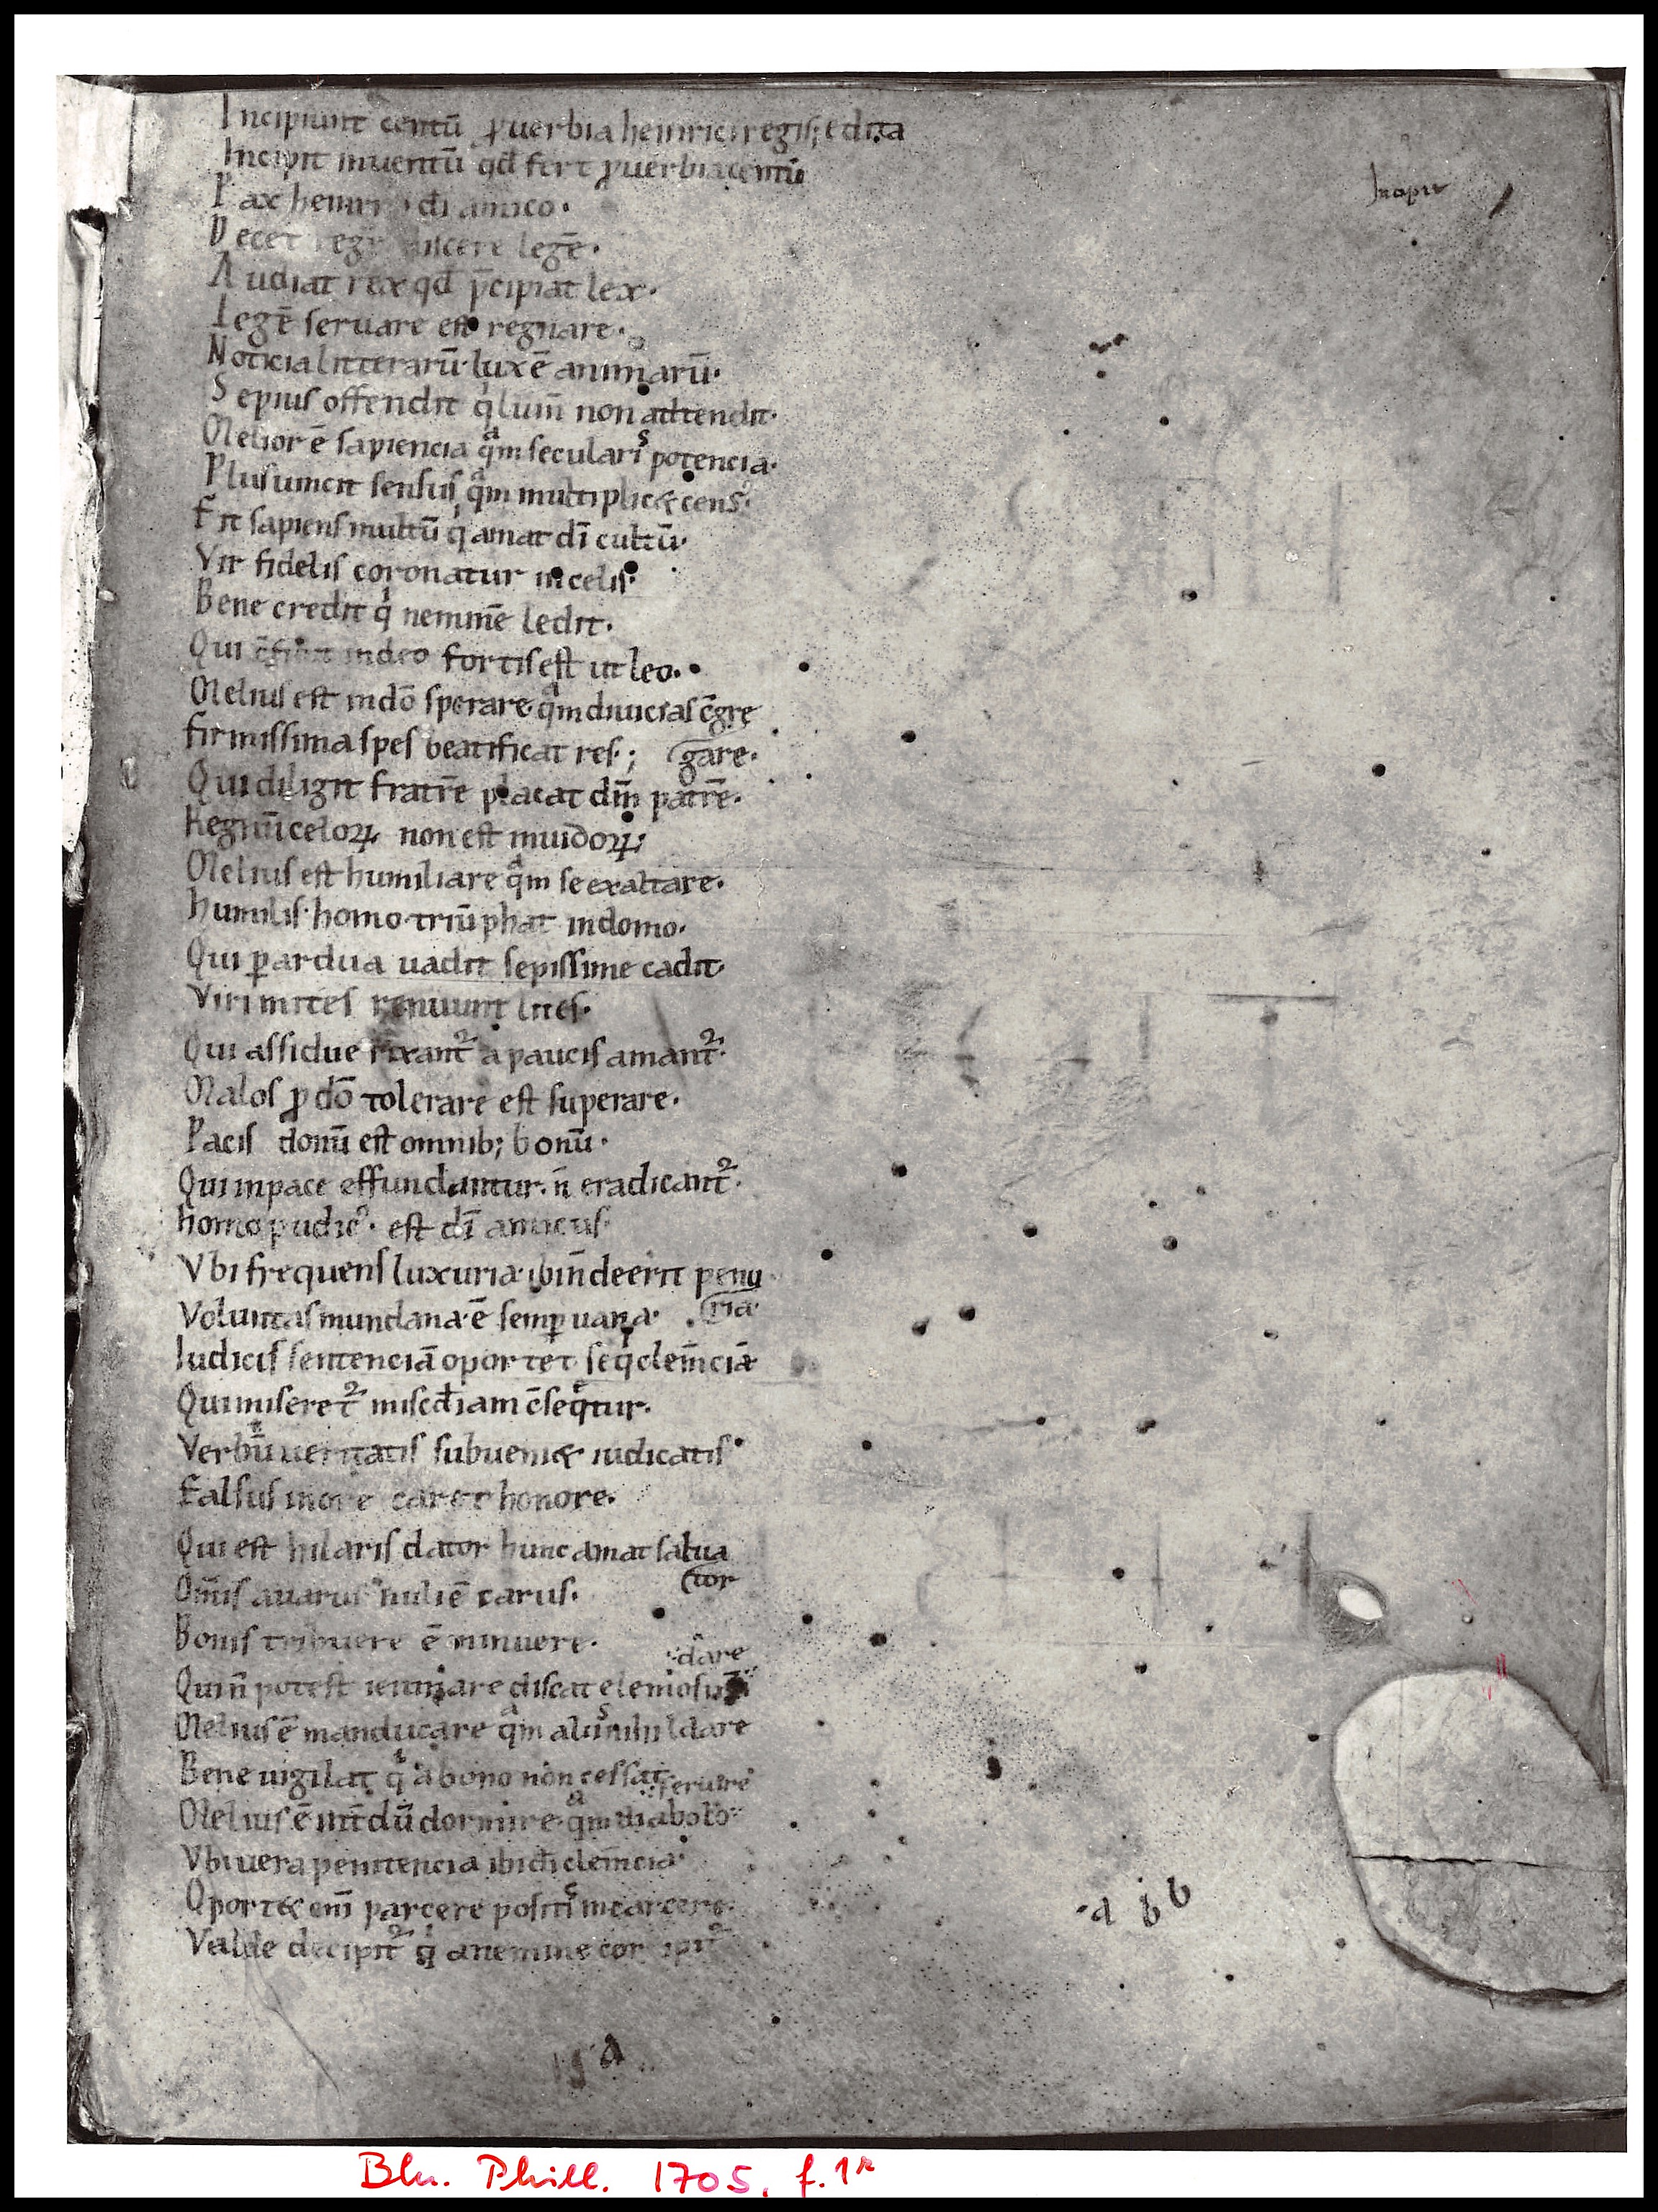 Incipiunt centū ꝓuerbia heinrici regis; edita
Incipit inuentū qđ fert ꝓuerbia centū
Incipit
Pax heinri di amico.
Decet regē discere legē.
Audiat rex qđ p̄cipiat lex.
Legē seruare est regnare.
Noticia litterarū. lux ē animarū.
Sepius offendit qͥ lum̄ non adtendit.
Melior ē sapiencia qͣm secularis potencia.
Plus iuuat sensus qͣm multiplic& census.
Fit sapiens multū qͥ amat dī cultū.
Vir fidelis coronatur in celis.
Bene credit qͥ neminē ledit.
Qui c̄fidit in deo fortis est ut leo.
Melius est in dō sperare qͣm diuicias c̄gre
firmissima spes beatificat res.; gare.
Qui diligit fratrē placat dm̄ patrē.
Regnū celoꝝ non est inuidoꝝ;
Melius est humiliare qͣm se exaltare.
humilis. homo triūphat in domo.
Qui ꝑ ardua uadit sepissime cadit.
Viri mites renuunt lites.
Qui assidue rixant᷑ a paucis amant᷑.
Malos ꝓ dō tolerare est superare.
Pacis donū est omnib; bonū.
Qui in pace effundantur. n̄ eradicant᷑.
homo pudicꝰ. est dī amicus.
Vbi frequens luxuria. ibi n̄ deerit penu
Voluntas mundana. ē semꝑ uana. ria.
Iudicis sentenciā oportet seqͥ clem̄ciā
Qui miseret᷑ misc̄diam c̄seqͥtur.
Verbū ueritatis subueni& iudicatis
Falsus in ore caret honore.
Qui est hilaris dator hunc amat salua
tor
Om̄is auarus nulli ē carus.
Bonis tribuere ē minuere.
dare
Qui n̄ potest ieiunare discat elemosinā
Melius ē manducare qͣm aliis nihil dare
Bene uigilat qͥ a bono non cessat.
seruire
Melius ē int̄dū dormire. qͣm diabolo
Vbi uera penitencia ibi dī clem̄cia
Oport& em̄ parcere positis in carcere.
Valde decipit᷑ qͥ a nemine cor ipit᷑
a b b